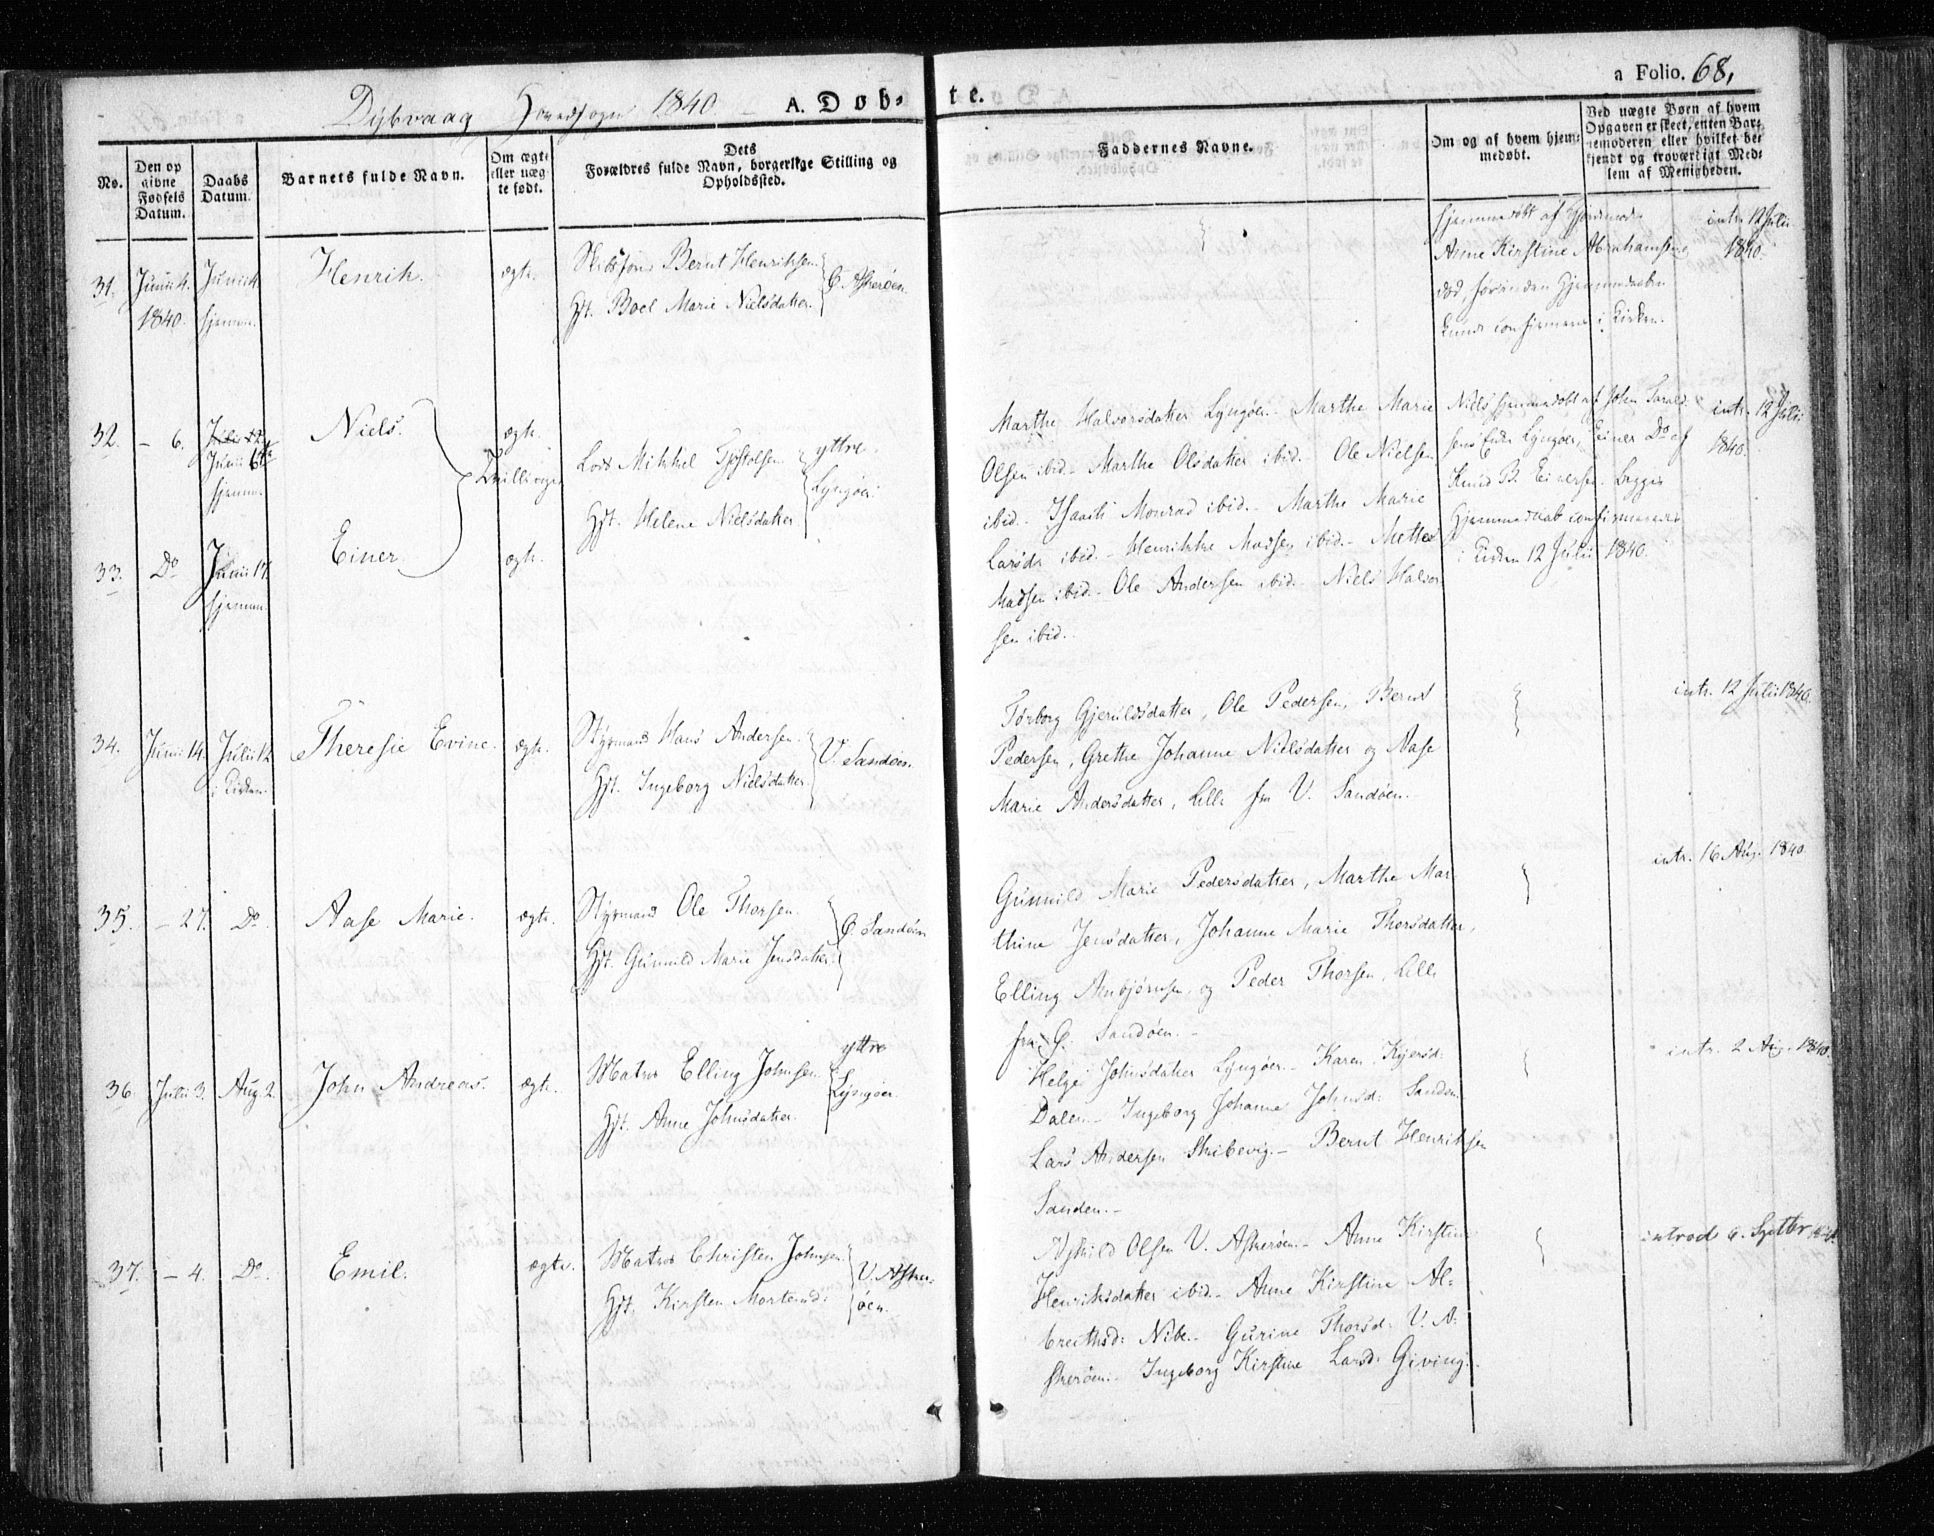 a Folio. 68,
Dybvaag Hovedsogn 1840. A. Døb-
te.
No.
Den opgivne Fødsels Datum.
Daabs Datum.
Barnets fulde Navn.
Om ægte eller uægte født.
Dets Forældres fulde Navn, borgerlige Stilling og Opholdssted.
Faddernes Navne.
Om og af hvem hjemmedøbt.
Ved uægte Børn af hvem Opgaven er skeet, enten Barnemoderen eller hvilket bekjendt og troværdigt Medlem af Menigheden.
31. Junii 4. 1840. Junii 4 hjemme.
Henrik.
ægte.
Bernt Henriksen
Hst. Boel Marie Nielsdatter.
Ø. Askerøen.
hjemmedøbt af
Anne Kirstine Abrahamsen
død, førinden Hjemmedaaben
kunde confirmeres i Kirken.
intr. 12 Julii
1840.
32. – 6.
Junii 6te
hjemme.
Niels.
ægte.
Tvillinger
Lods Mikkel
Hst. Helene Nielsdatter
yttre
Lyngøer.
33. Do
Junii
hjemme.
Einer.
ægte.
Marthe Halvorsdatter Lyngøer. Marthe Marie
Olsen ibid. Marthe Olsdatter ibid. Ole Nielsen
ibid. Isaach Monrad ibid. Marthe Marie
Larsdr ibid. Henrikke Madsen ibid. Mette
Madsen ibid. Ole Andersen ibid. Niels Halvor
sen ibid.
Niels hjemmedøbt af John
sens Enke Lyngøer, Einer Do af
Knud B. Einersen. Begges
Hjemmedaab confirmeret
i Kirken 12 Julii 1840.
intr. 12 Julii
1840.
34. Junii 14. Julii 12
i Kirken.
Theresie Evine.
ægte.
Styrmand Hans Andersen.
Hst. Ingeborg Nielsdatter
V. Sandøen.
Torborg Gjeruldsdatter, Ole Pedersen, Bernt
Pedersen, Grethe Johanne Nielsdatter og Aase
Marie Andersdatter, alle fra V. Sandøen.
intr. 12 Julii 1840.
35. – 27. Do.
Aase Marie.
ægte.
Styrmand Ole Thorsen.
Hst. Gunnild Marie Jensdatter.
Ø. Sandøen
Gunnild Marie Pedersdatter, Marthe Mar-
thine Jensdatter, Johanne Marie Thorsdatter,
Elling Anbjørnsen, og Peder Thorsen, alle
fra Ø. Sandøen.
intr. 16 Aug. 1840
36 Julii 3. Aug. 2.
John Andreas.
ægte.
Matros Elling Johnsen
Hst. Anne Johnsdatter.
yttre
Lyngøer.
Helge Johnsdatter Lyngøer. Karen
Dalen. Ingeborg Johanne Johnsd: Sanden
Lars Andersen Skibevig. Bernt Henriksen
Sanden.
intr. 2 Aug. 1840.
37. – 4. Do.
Emil.
ægte.
Matros Christen Johnsen
Hst. Kirsten Mortensd:
V. Asker-
øen.
Olsen V. Askerøen. Anne Kirstine
Henriksdatter ibid. Anne Kirstine Al-
brethsd: Nibe. Gurine Thorsd: V. A-
skerøen. Ingeborg Kirstine Larsd: Giving.
introd 6. Septbr 1840.